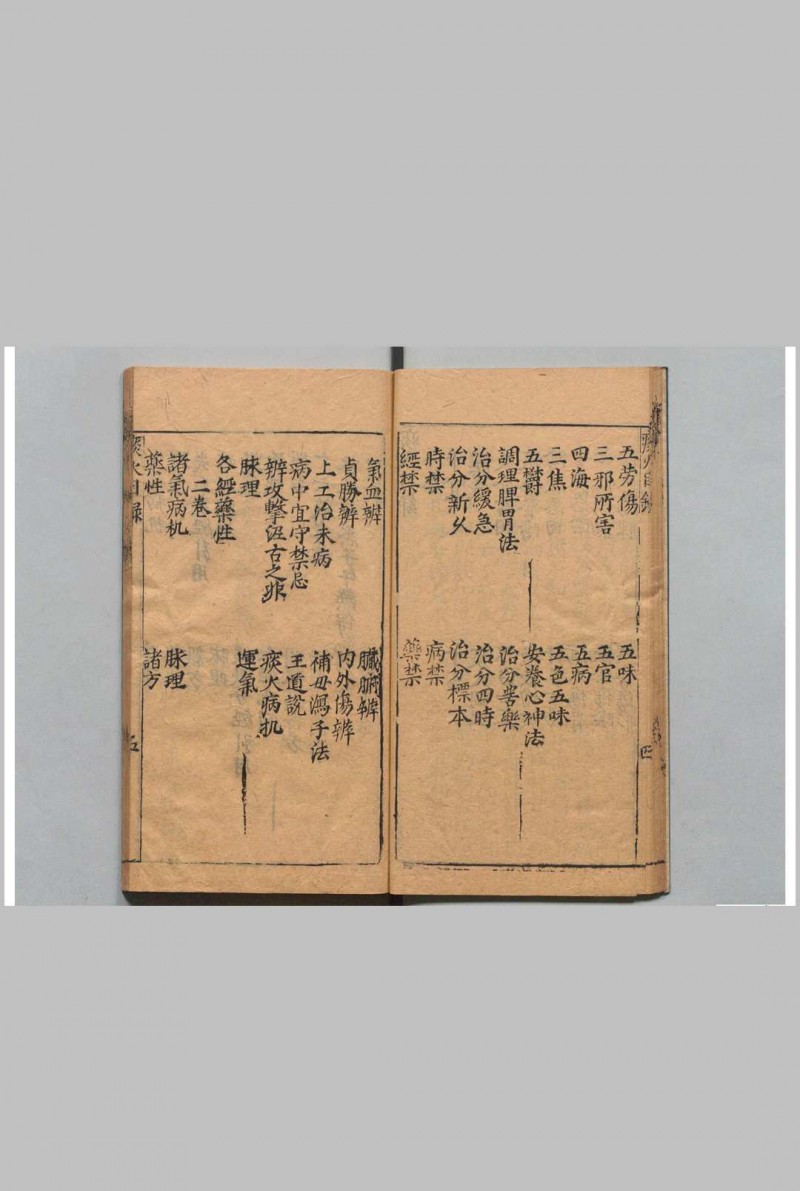 痰火目錄
五勞傷 五味
三邪所害 五官
四海 五病
三焦 五色五味
五欝 安養心神法
調理脾胃法 治分苦樂
治分緩急 治分四時
治分新久 治分標本
時禁 病禁
經禁 藥禁
四
氣血辨 臟腑辨
貞勝辨 内外傷辨
上工治未病 補母瀉子法
病中宜守禁忌 王道說
辨攻擊泥古之非 痰火病机
脉理 運氣
各經藥性
二卷
諸氣病机 脉理
藥性 諸方
痰火目录
五